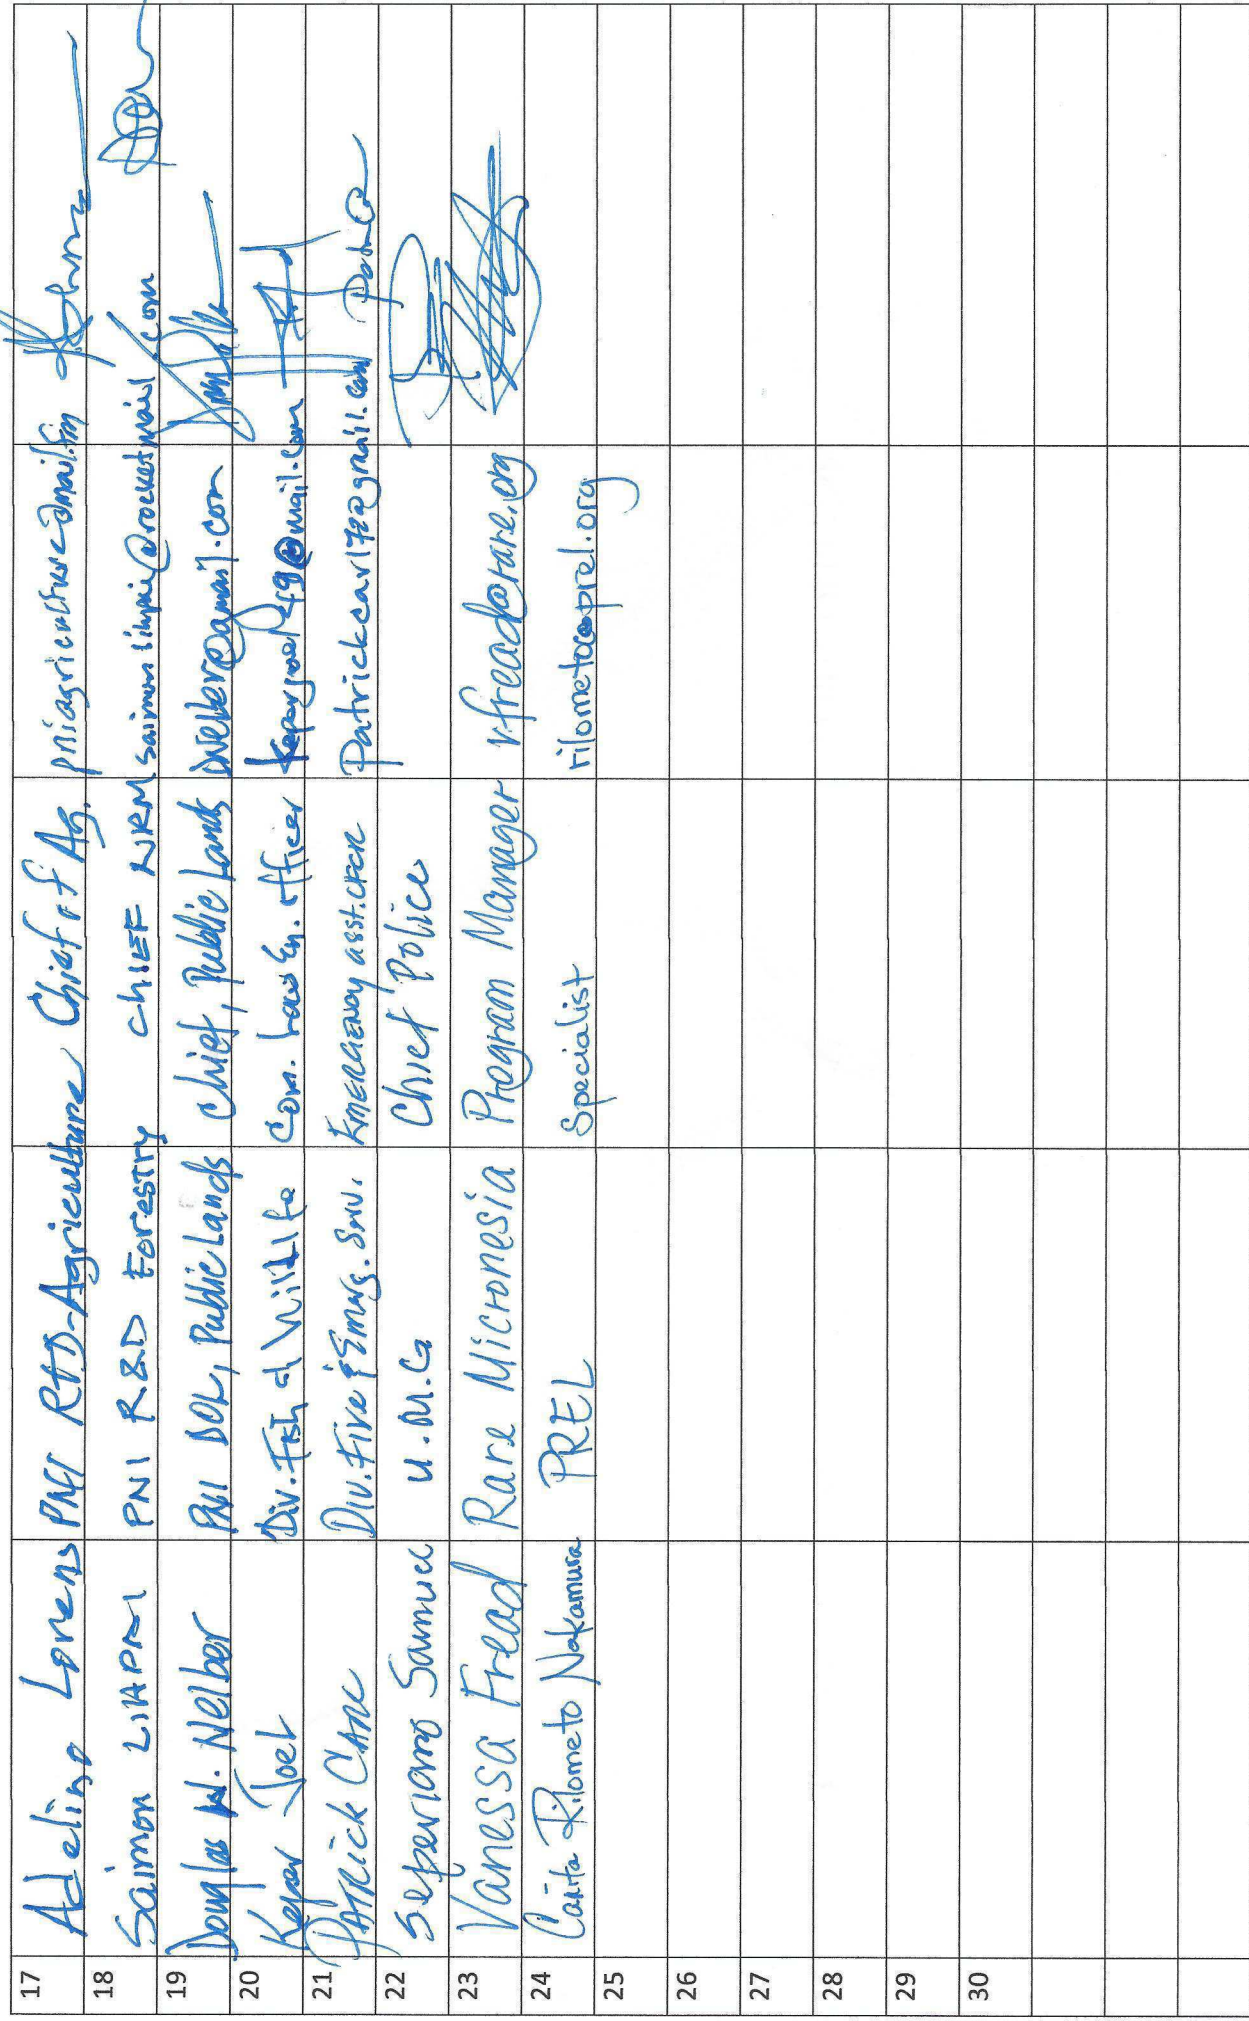 17 Adelino Lorens PNI R&D-Agriculture Chief of Ag. pniagriculture@mail.fm
18 Saimon LIHPAI PNI R&D Forestry CHIEF NRM saimonlihpai@rocketmail.com
19 Douglas W. Nelber PNI DOL, Public Lands Chief, Public Lands
20 Kepar Joel Div. Fish & Wildlife Com. Law En. Officer
21 PATRICK CARL Div. Fire & Emerg. Serv. EMERGENCY asst. Patrickcarl72@gmail.com
22 Seperiano Samuel U.M.G Chief Police
23 Vanessa Fread Rare Micronesia Program Manager vfread@rare.org
24 Carita Rilometo Nakamura PREL Specialist rilometoc@prel.org
25
26
27
28
29
30